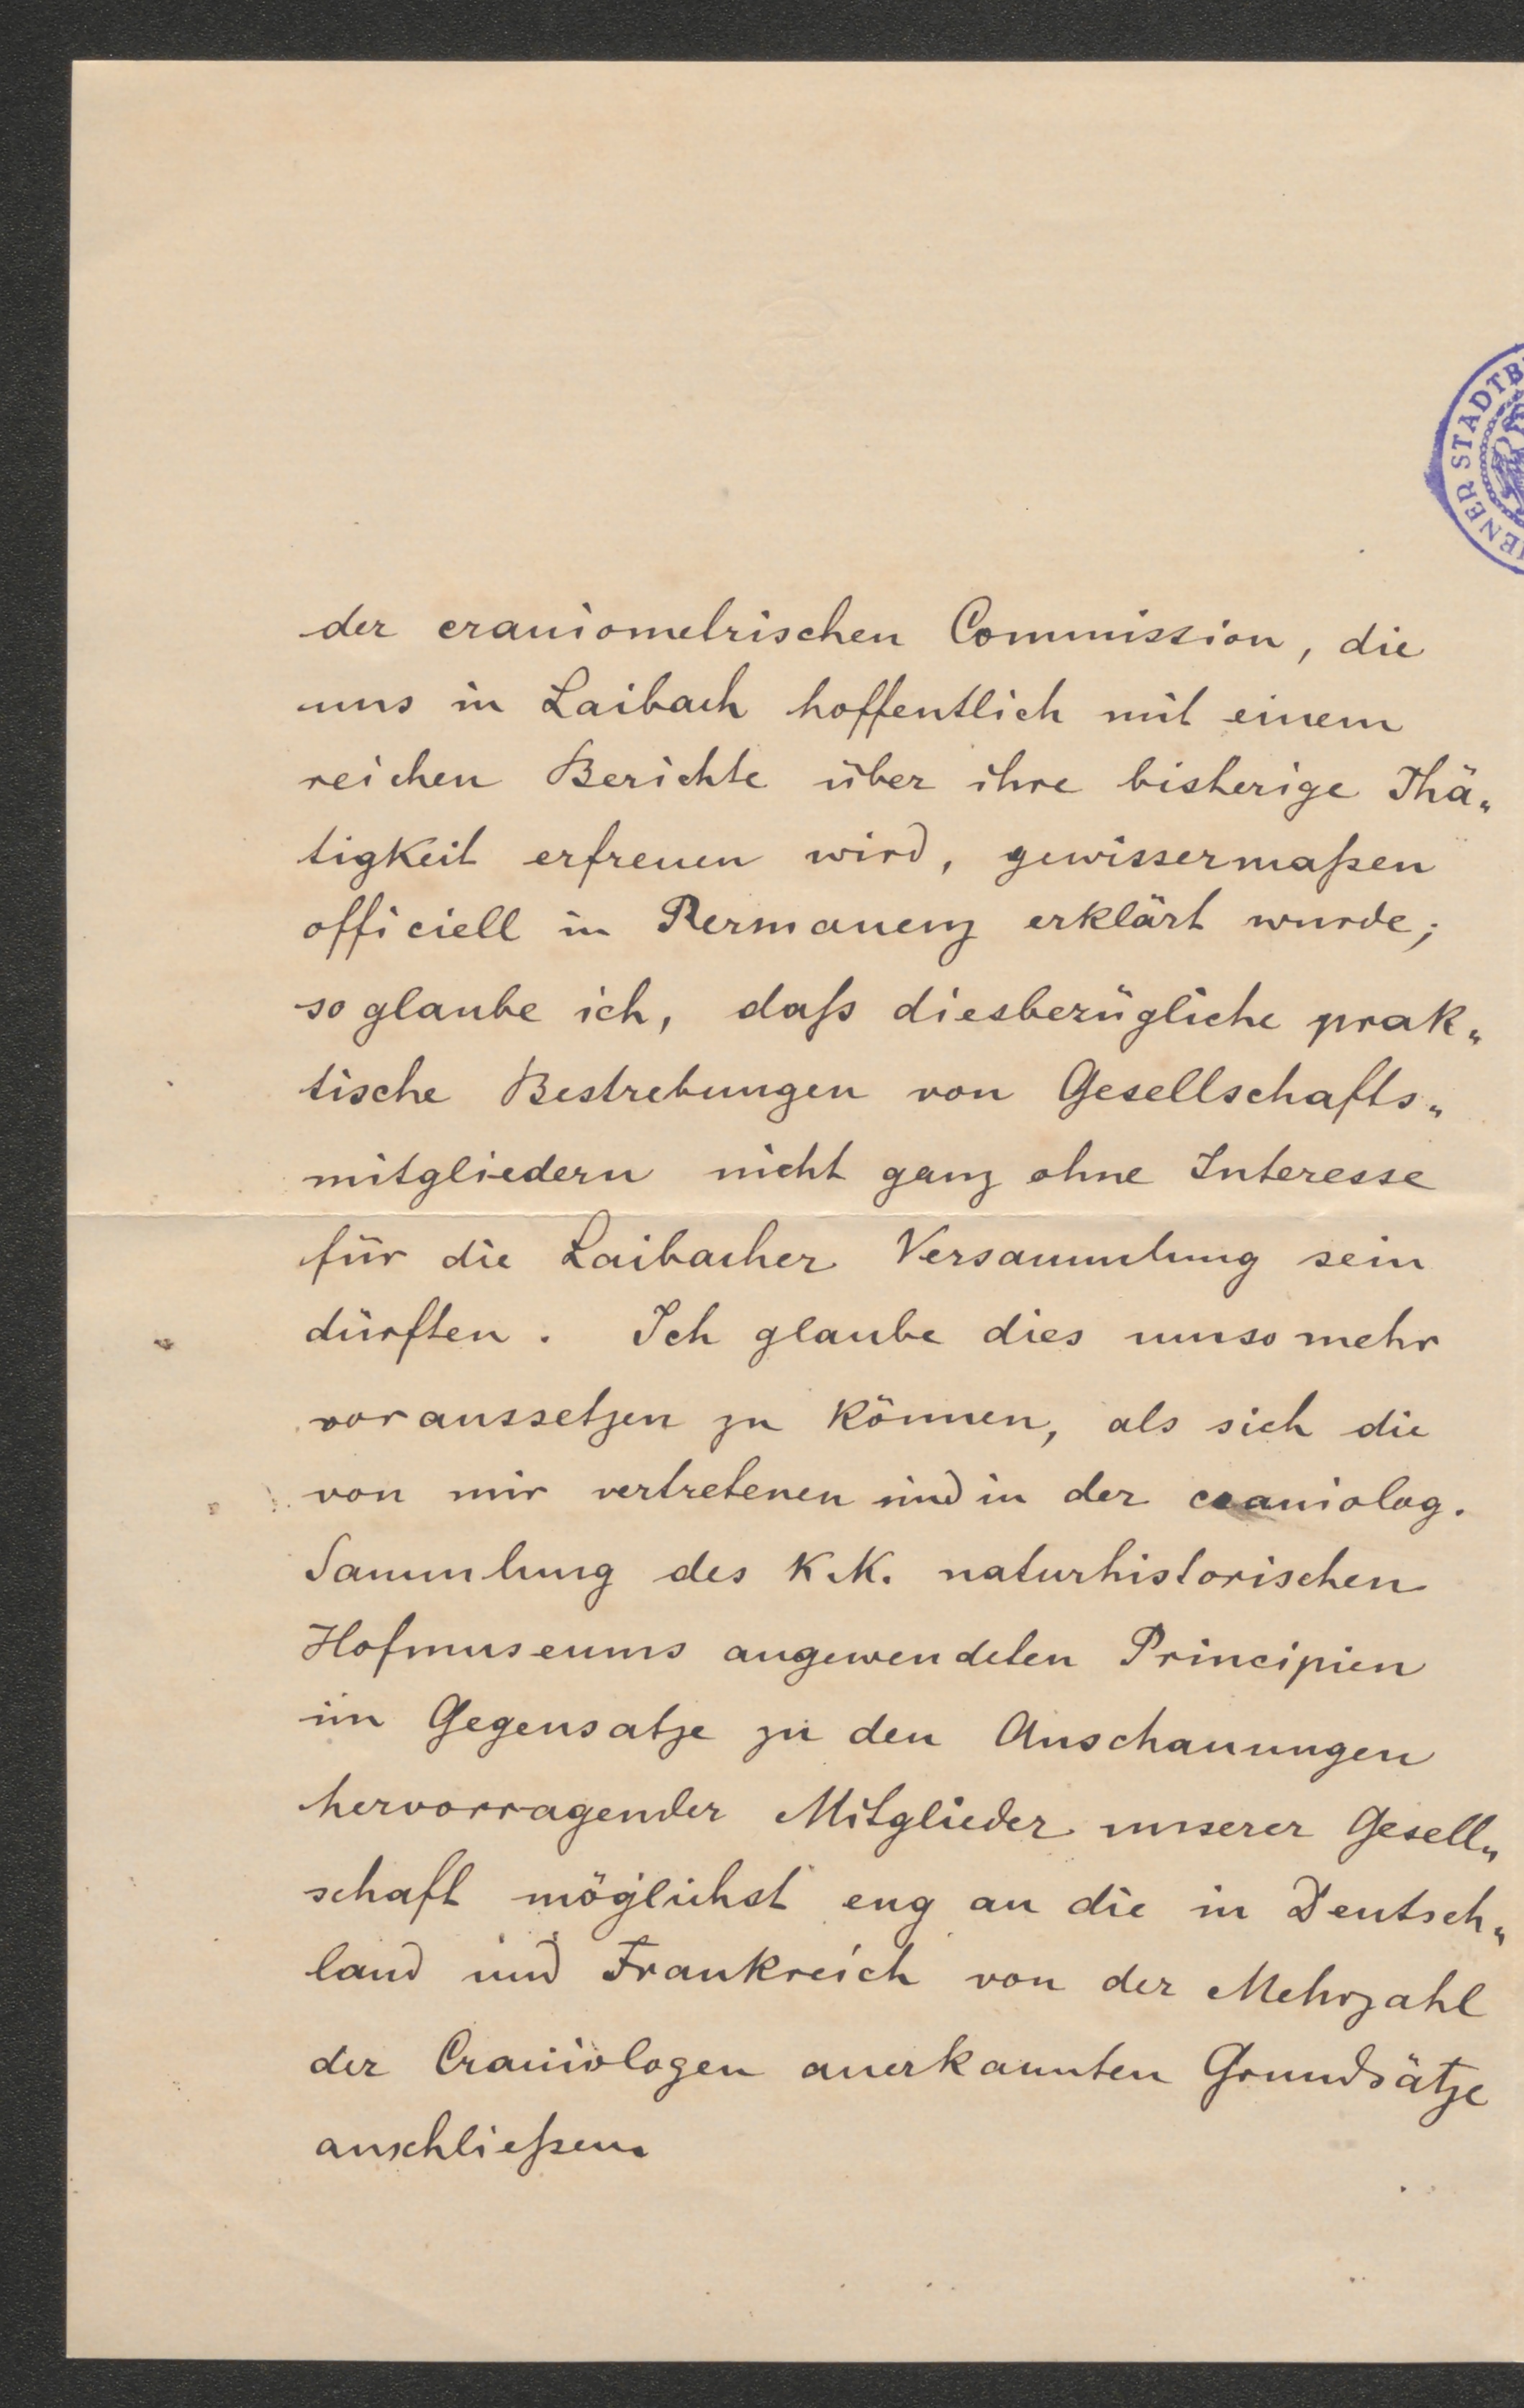 WIENER STADTB
der craniometrischen Commission, die
uns in Laibach hoffentlich mit einem
reichen Berichte über ihre bisherige Thä„
tigkeit erfreuen wird, gewissermaßen
officiell in Permanenz erklärt wurde;
so glaube ich, daß diesbezügliche prak„
tische Bestrebungen von Gesellschafts„
mitgliedern nicht ganz ohne Interesse
für die Laibacher Versammlung sein
dürften. Ich glaube dies umso mehr
voraussetzen zu können, als sich die
von mir vertretenen und in der craniolog.
Sammlung des K.K. naturhistorischen
Hofmuseums angewendeten Principien
im Gegensatze zu den Anschauungen
hervorragender Mitglieder unserer Gesell„
schaft möglichst eng an die in Deutsch„
land und Frankreich von der Mehrzahl
der Craniologen anerkannten Grundsätze
anschließen.